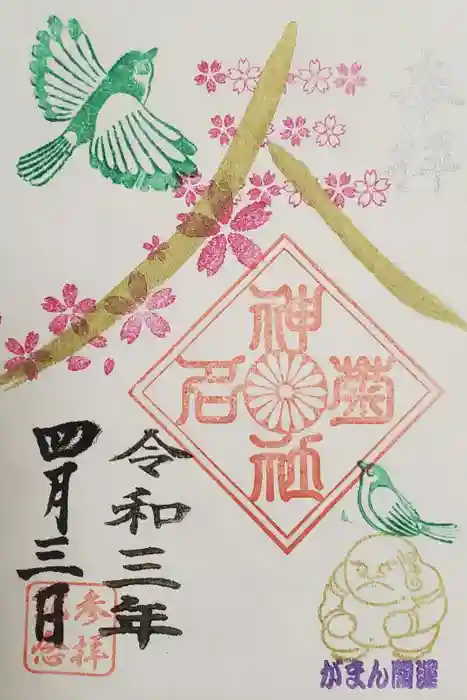 奉拝
菊名
神社
令和三年
四月三日
参拝
記念
がまん開運